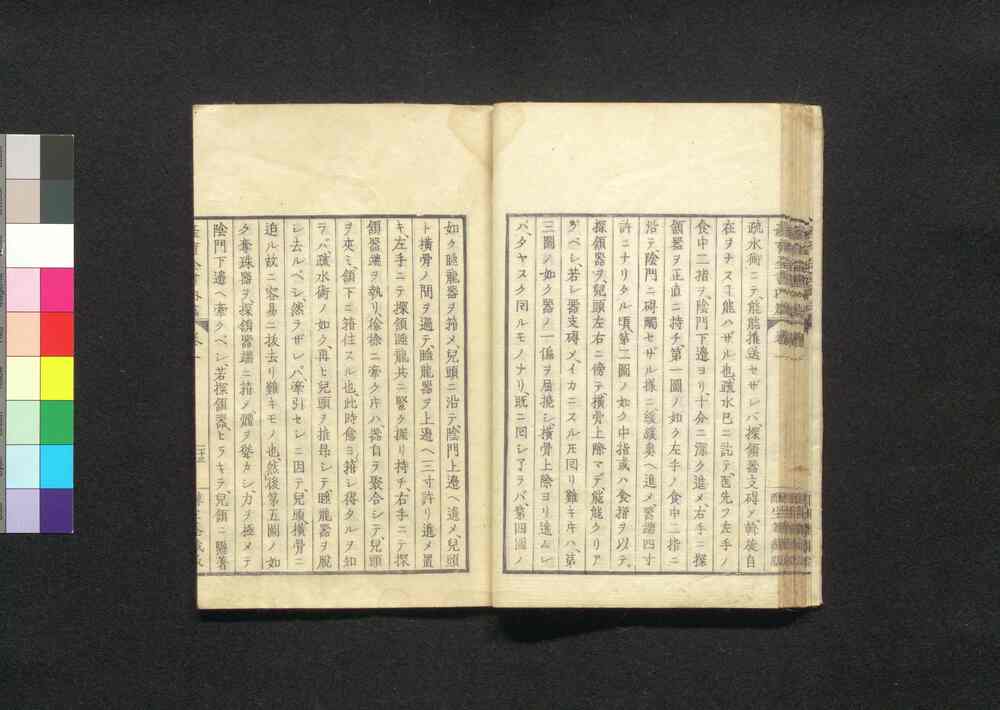 疏水術ニテ、能能推送セザレバ、探領器支碍メ、斡旋自
在ヲナスヿ能ハザル也、疏水已ニ訖テ、醫先フ左手ノ
食中二指ヲ、陰門下邊ヨリ十分ニ深ク進メ、右手ニ探
領器ヲ正直ニ持チ、第一圖ノ如ク左手ノ食中二指ニ
沿テ、陰門ニ碍觸セザル樣ニ緩緩奥ヘ進メ、器端四寸
許ニナリタル頃、第二圖ノ如ク中指或ハ食指ヲ以テ、
探領器ヲ、兒頭左右ニ傍テ橫骨上際マデ、能能クリア
グベシ、若シ器支碍メ、イカニスルモ回リ難キキハ、第
三圖ノ如ク器ノ一偏ヲ屈撓シ、橫骨上際ヨリ進ムレ
バ、タヤスク回ルモノナリ、既ニ回シ了ラバ、第四圖ノ
如ク睡龍器ヲ箝メ、兒頭ニ沿テ、陰門上邊ヘ進メ、兒頭
ト橫骨ノ間ヲ過テ、睡龍器ヲ上邊ヘ三寸許リ進メ置
キ、左手ニテ探領睡龍共ニ緊ク握リ持チ、右手ニテ探
領器端ヲ執リ、徐徐ニ牽クキハ、器自ラ聚合シテ、兒頭
ヲ夾ミ、領下ニ箝住スル也、此時愈ヨ箝シ得タルヲ知
ラバ、疏水術ノ如ク、再ヒ兒頭ヲ推昂シテ、睡龍器ヲ脫
シ去ルベシ、然ラザレバ、牽引セシニ因テ、兒頭橫骨ニ
迫ル故ニ、容易ニ拔去リ難キモノ也、然後第五圖ノ如
ク、牽珠器ヲ、探領器端ニ箝メ、髖ヲ擧カシ、力ヲ極メテ
陰門下邊ヘ牽クベシ、若探領器、ヒラキテ、兒領ニ黏著